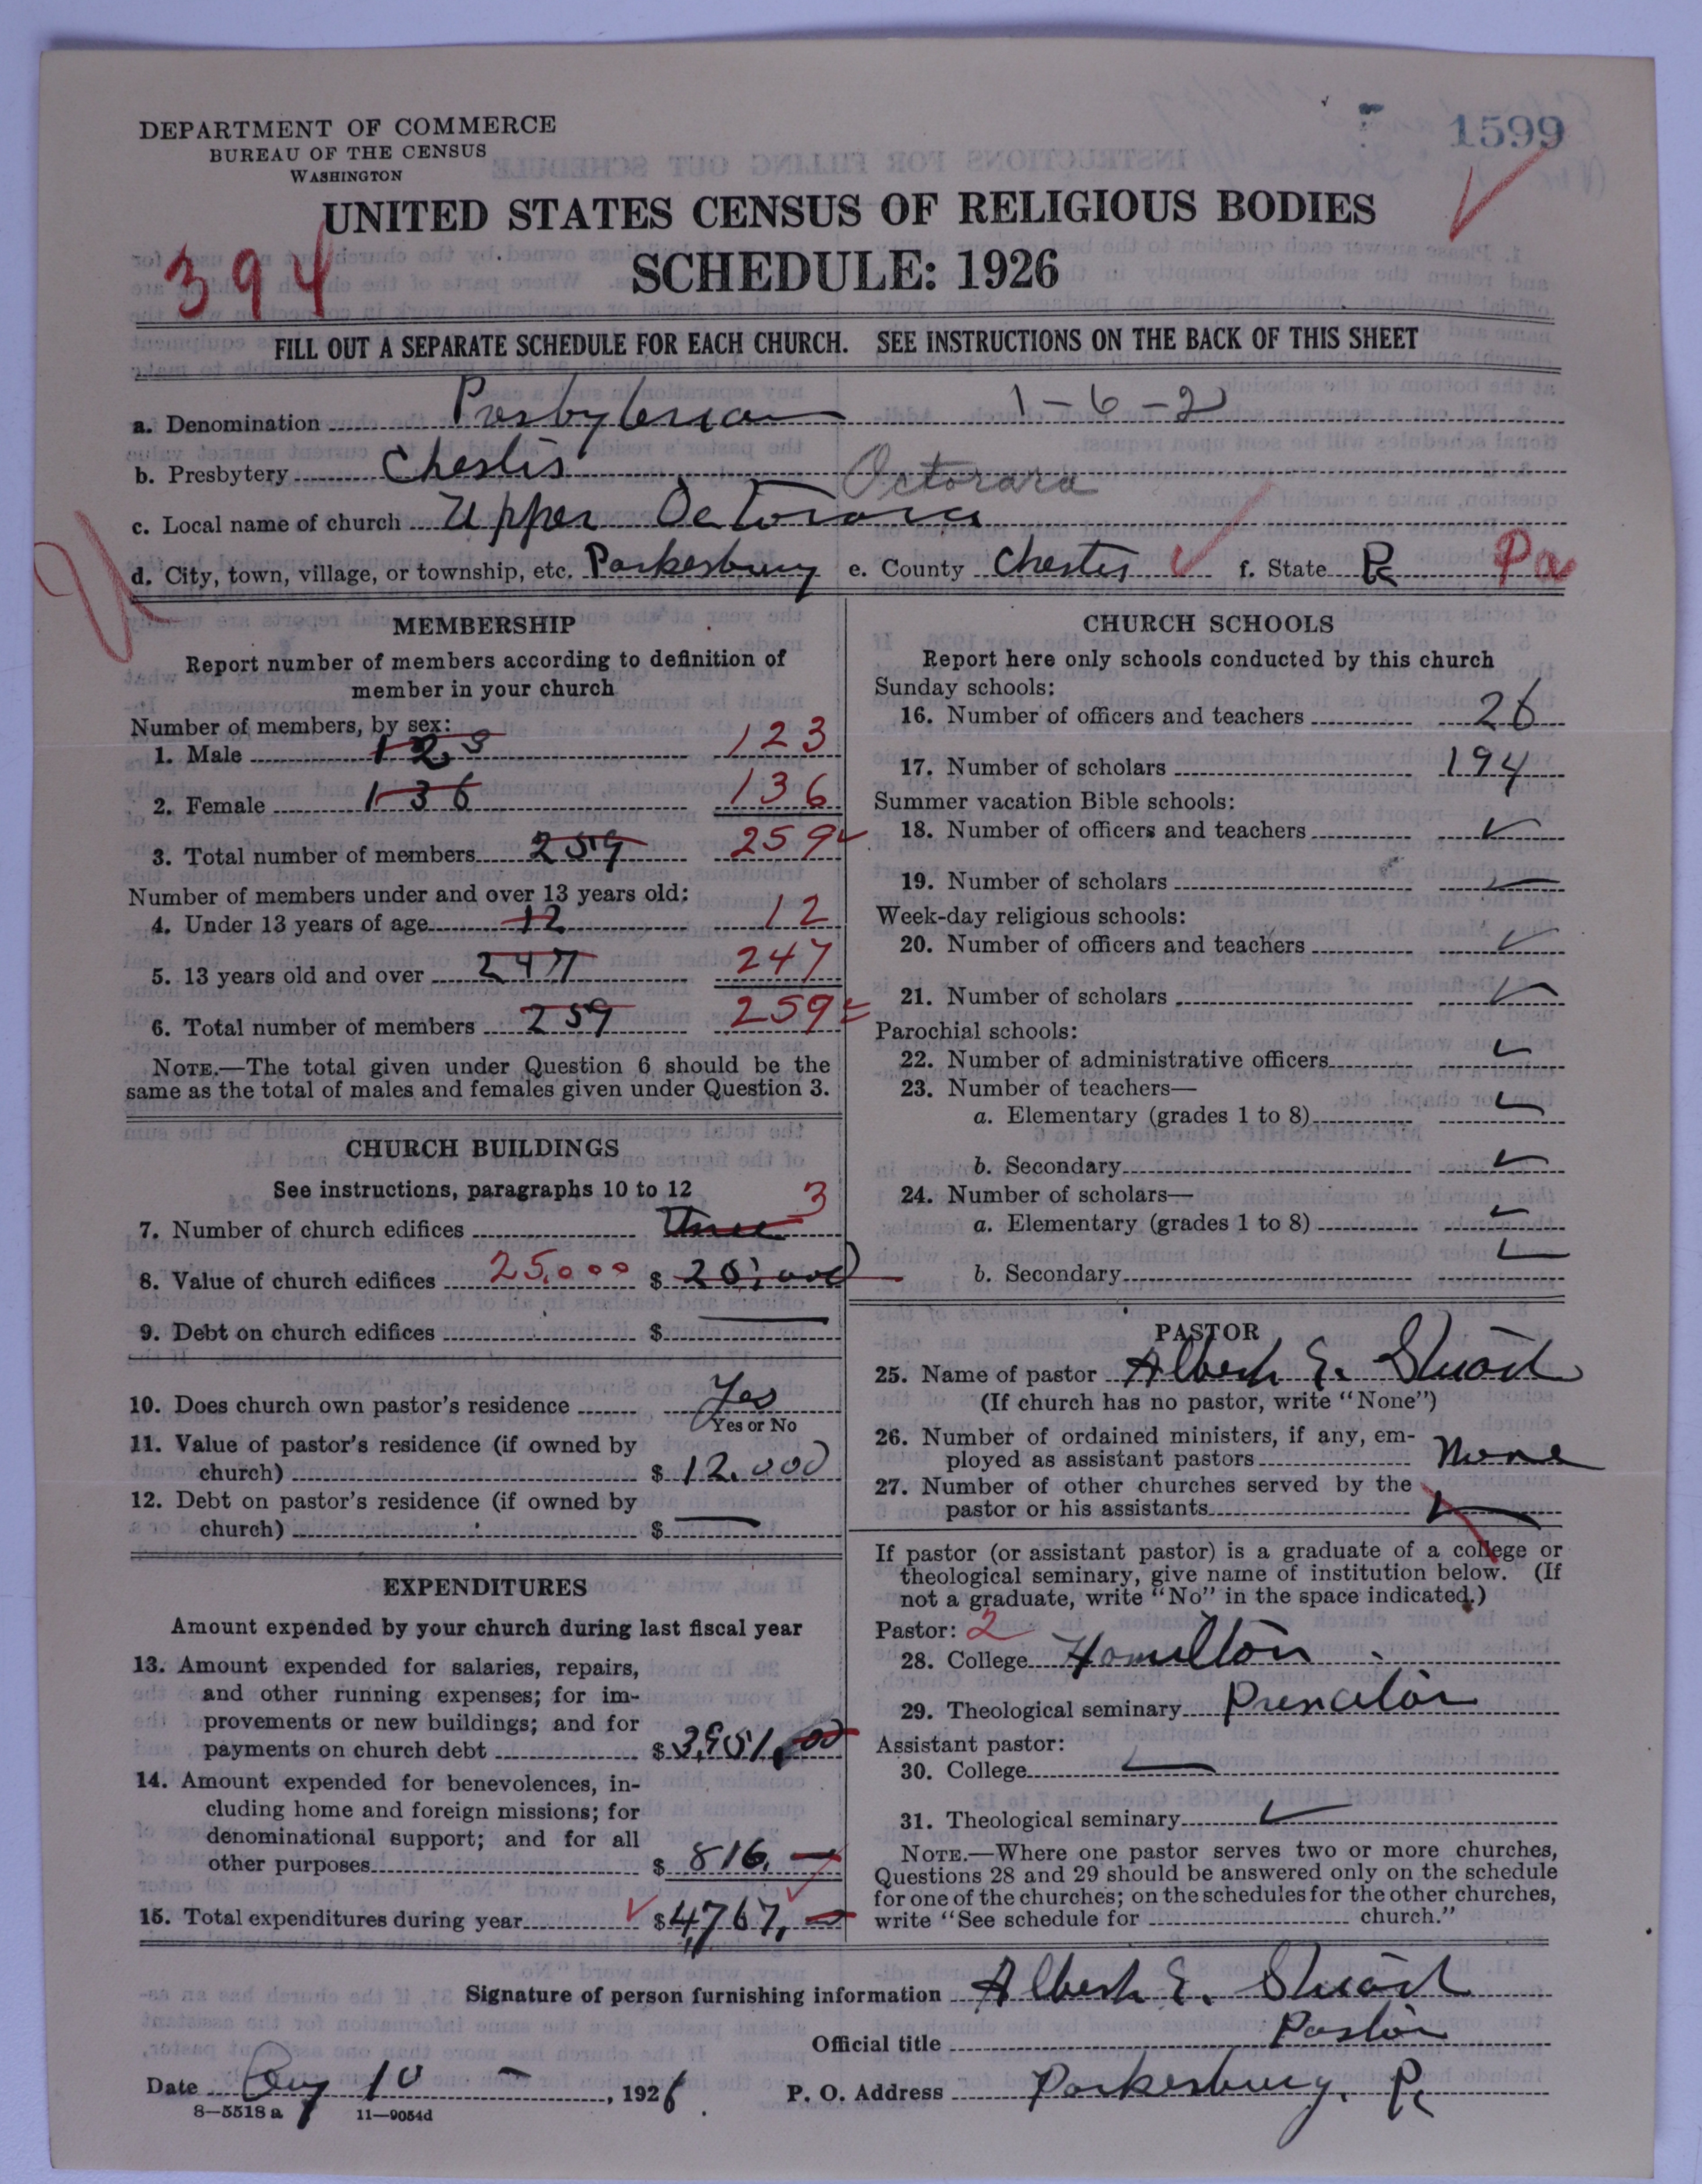 DEPARTMENT OF COMMERCE
BUREAU OF THE CENSUS
WASHINGTON
1599
UNITED STATES CENSUS OF RELIGIOUS BODIES
394
SCHEDULE: 1926
FILL OUT A SEPARATE SCHEDULE FOR EACH CHURCH. SEE INSTRUCTIONS ON THE BACK OF THIS SHEET
a. Denomination Presbyterian 1-6-2
b. Presbytery Chester Octorara
c. Local name of church Upper Octorara
d. City, town, village, or township, etc. Parkesburg e. County Chester f. State Pa Pa
MEMBERSHIP
Report number of members according to definition of
member in your church
Number of members, by sex:
1. Male 123 123
2. Female 136 136
3. Total number of members 259 259
Number of members under and over 13 years old:
4. Under 13 years of age 12 12
5. 13 years old and over 247 247
6. Total number of members 259 259
NOTE.—The total given under Question 6 should be the
same as the total of males and females given under Question 3.
CHURCH BUILDINGS
See instructions, paragraphs 10 to 12
7. Number of church edifices Three 3
8. Value of church edifices 25,000 $
9. Debt on church edifices $ —
10. Does church own pastor's residence Yes
Yes or No
11. Value of pastor's residence (if owned by
church) $ 12.000
12. Debt on pastor's residence (if owned by
church) $ —
EXPENDITURES
Amount expended by your church during last fiscal year
13. Amount expended for salaries, repairs,
and other running expenses; for im-
provements or new buildings; and for
payments on church debt $ 3,951.00
14. Amount expended for benevolences, in-
cluding home and foreign missions; for
denominational support; and for all
other purposes $ 816. —
15. Total expenditures during year $ 4,767. —
CHURCH SCHOOLS
Report here only schools conducted by this church
Sunday schools:
16. Number of officers and teachers 26
17. Number of scholars 194
Summer vacation Bible schools:
18. Number of officers and teachers
19. Number of scholars
Week-day religious schools:
20. Number of officers and teachers
21. Number of scholars
Parochial schools:
22. Number of administrative officers
23. Number of teachers—
a. Elementary (grades 1 to 8)
b. Secondary
24. Number of scholars—
a. Elementary (grades 1 to 8)
b. Secondary
PASTOR
25. Name of pastor Albert E. Stuart
(If church has no pastor, write "None")
26. Number of ordained ministers, if any, em-
ployed as assistant pastors None
27. Number of other churches served by the
pastor or his assistants
If pastor (or assistant pastor) is a graduate of a college or
theological seminary, give name of institution below. (If
not a graduate, write "No" in the space indicated.)
Pastor: 2
28. College Hamilton
29. Theological seminary Princeton
Assistant pastor:
30. College
31. Theological seminary
NOTE.—Where one pastor serves two or more churches,
Questions 28 and 29 should be answered only on the schedule
for one of the churches; on the schedules for the other churches,
write "See schedule for church."
Signature of person furnishing information Albert E. Stuart
Official title Pastor
Date Aug 10 —, 1926 P. O. Address Parkesburg, Pa
8—5518 a 11—9054d